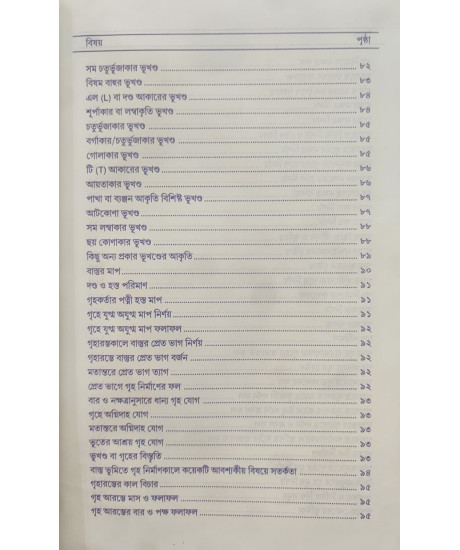 বিষয় পৃষ্ঠা
সম চতুর্ভূজাকার ভূখণ্ড ৮২
বিষম বাহুর ভূখণ্ড ৮৩
এল (L) বা দণ্ড আকারের ভূখণ্ড ৮৪
শূর্পাকার বা লম্বাকৃতি ভূখণ্ড ৮৪
চতুর্ভূজাকার ভূখণ্ড ৮৫
বর্গাকার/চতুর্ভূজাকার ভূখণ্ড ৮৫
গোলাকার ভূখণ্ড ৮৫
টি (T) আকারের ভূখণ্ড ৮৬
আয়তাকার ভূখণ্ড ৮৬
পাখা বা ব্যঞ্জন আকৃতি বিশিষ্ট ভূখণ্ড ৮৭
আটকোণা ভূখণ্ড ৮৭
সম লম্বাকার ভূখণ্ড ৮৮
ছয় কোণাকার ভূখণ্ড ৮৮
কিছু অন্য প্রকার ভূখণ্ডের আকৃতি ৮৯
বাস্তুর মাপ ৯০
দণ্ড ও হস্ত পরিমাণ ৯১
গৃহকর্তার পত্নী হস্ত মাপ ৯১
গৃহে যুগ্ম অযুগ্ম মাপ নির্ণয় ৯১
গৃহে যুগ্ম অযুগ্ম মাপ ফলাফল ৯২
গৃহারম্ভকালে বাস্তুর প্রেত ভাগ নির্ণয় ৯২
গৃহারম্ভে বাস্তুর প্রেত ভাগ বর্জন ৯২
মতান্তরে প্রেত ভাগ ত্যাগ ৯২
প্রেত ভাগে গৃহ নির্মাণের ফল ৯২
বার ও নক্ষত্রানুসারে ধান্য গৃহ যোগ ৯৩
গৃহে অগ্নিদাহ যোগ ৯৩
মতান্তরে অগ্নিদাহ যোগ ৯৩
ভূতের আশ্রয় গৃহ যোগ ৯৩
ভূখণ্ড বা গৃহের বিস্তৃতি ৯৩
বাস্তু ভূমিতে গৃহ নির্মাণকালে কয়েকটি আবশ্যকীয় বিষয়ে সতর্কতা ৯৪
গৃহারম্ভের কাল বিচার ৯৫
গৃহ আরম্ভে মাস ও ফলাফল ৯৫
গৃহ আরম্ভের বার ও পক্ষ ফলাফল ৯৫